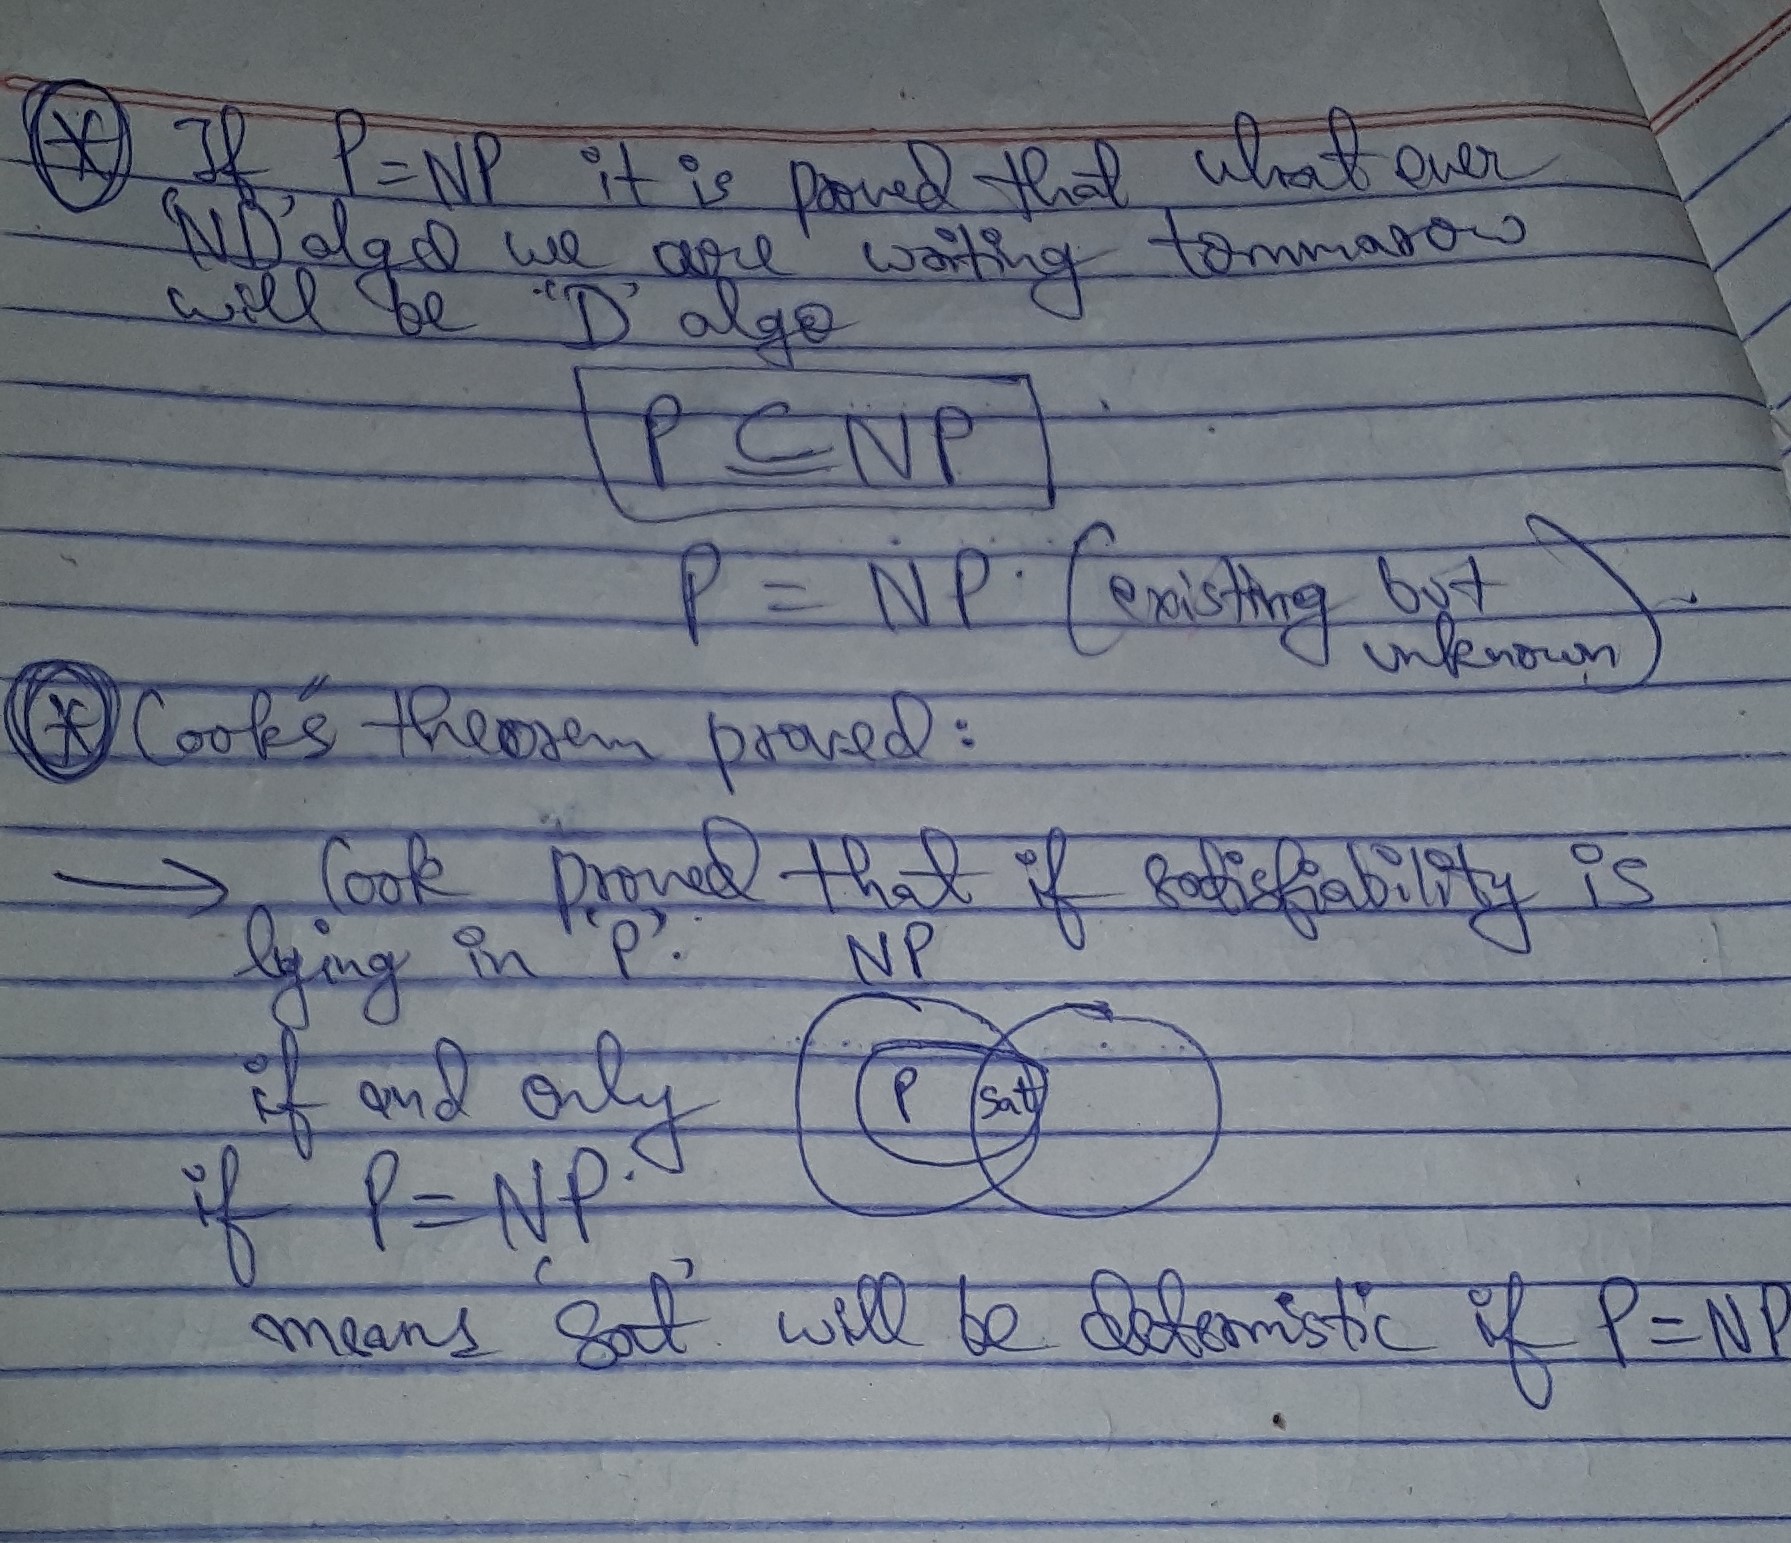 * If P=NP it is proved that whatever
'ND' algo we are writing tommarow
will be "D' algo
P ⊆ NP
P = NP. (existing but
unknown)
* Cook's theorem proved:
→ Cook proved that if satisfiability is
lying in 'P'.
NP
if and only
P sat
if P=NP.
means 'sat' will be detormistic if P=NP